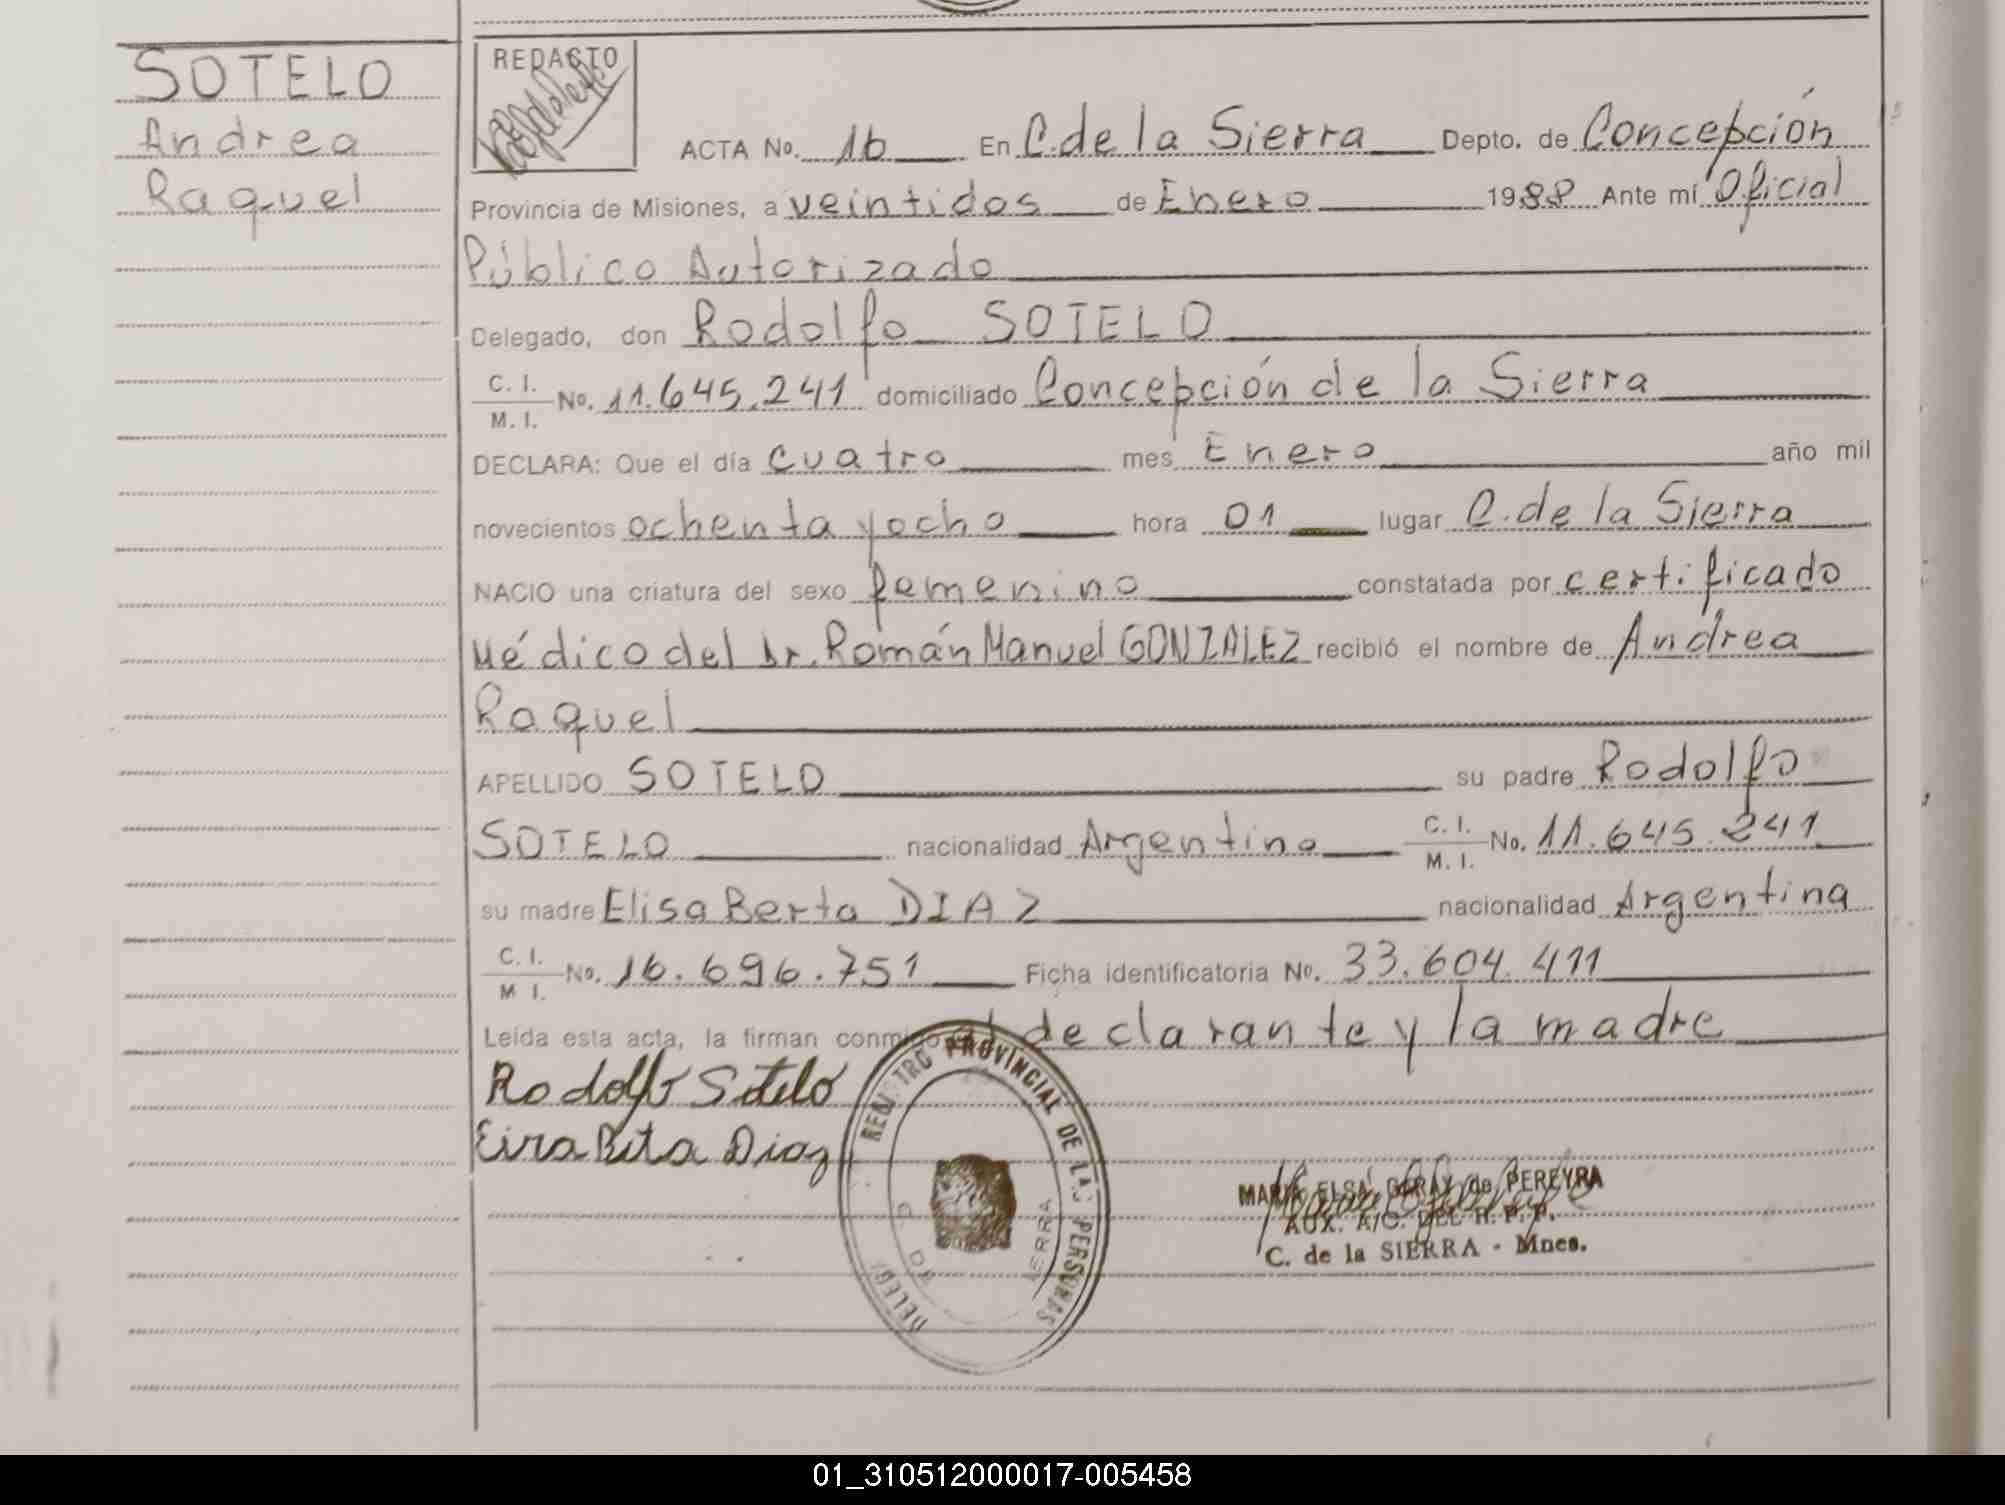 SOTELO
Andrea
Raquel
REDACTO
ACTA No. 16 En C. de la Sierra Depto. de Concepción
Provincia de Misiones, a veintidos de Enero 1988 Ante mí Oficial
Público Autorizado
Delegado, don Rodolfo SOTELO
C. I. / M. I. No. 11.645.241 domiciliado Concepción de la Sierra
DECLARA: Que el día cuatro mes Enero año mil
novecientos ochenta y ocho hora 01 lugar C. de la Sierra
NACIO una criatura del sexo femenino constatada por certificado
Médico del Dr. Román Manuel GONZALEZ recibió el nombre de Andrea
Raquel
APELLIDO SOTELO su padre Rodolfo
SOTELO nacionalidad Argentino C. I. / M. I. No. 11.645.241
su madre Elisa Berta DIAZ nacionalidad Argentina
C. I. / M I. No. 16.696.751 Ficha identificatoria No. 33.604.411
Leída esta acta, la firman conmigo el declarante y la madre
Rodolfo Sotelo
Diaz
REGISTRO PROVINCIAL DE LAS PERSONAS
MARIA ELSA GARAY de PEREYRA
AUX. A/C. DEL R. P. P.
C. de la SIERRA - Mnes.
01_310512000017-005458